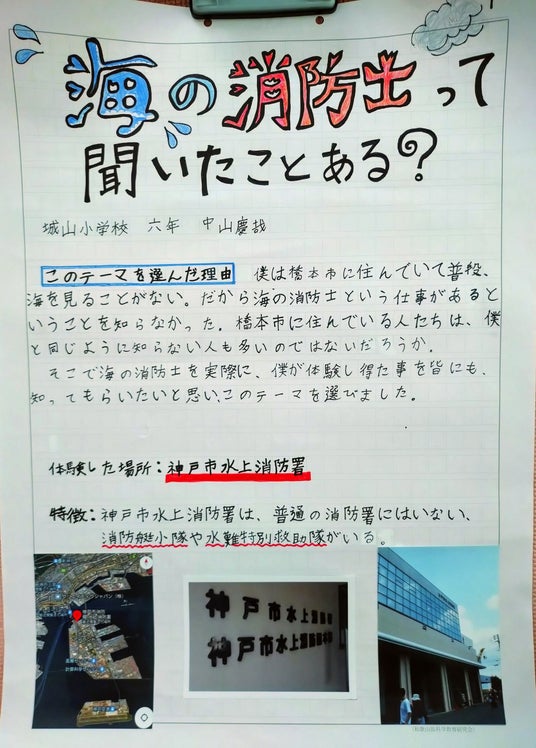 海の消防士って
聞いたことある?
城山小学校 六年 中山慶哉
このテーマを選んだ理由 僕は橋本市に住んでいて普段、
海を見ることがない。だから海の消防士という仕事があると
いうことを知らなかった。橋本市に住んでいる人たちは、僕
と同じように知らない人も多いのではないだろうか。
そこで海の消防士を実際に、僕が体験し得た事を皆にも、
知ってもらいたいと思い、このテーマを選びました。
体験した場所:神戸市水上消防署
特徴:神戸市水上消防署は、普通の消防署にはいない、
消防艇小隊や水難特別救助隊がいる。
神戸市水上消防署
神戸市水上消防団本部